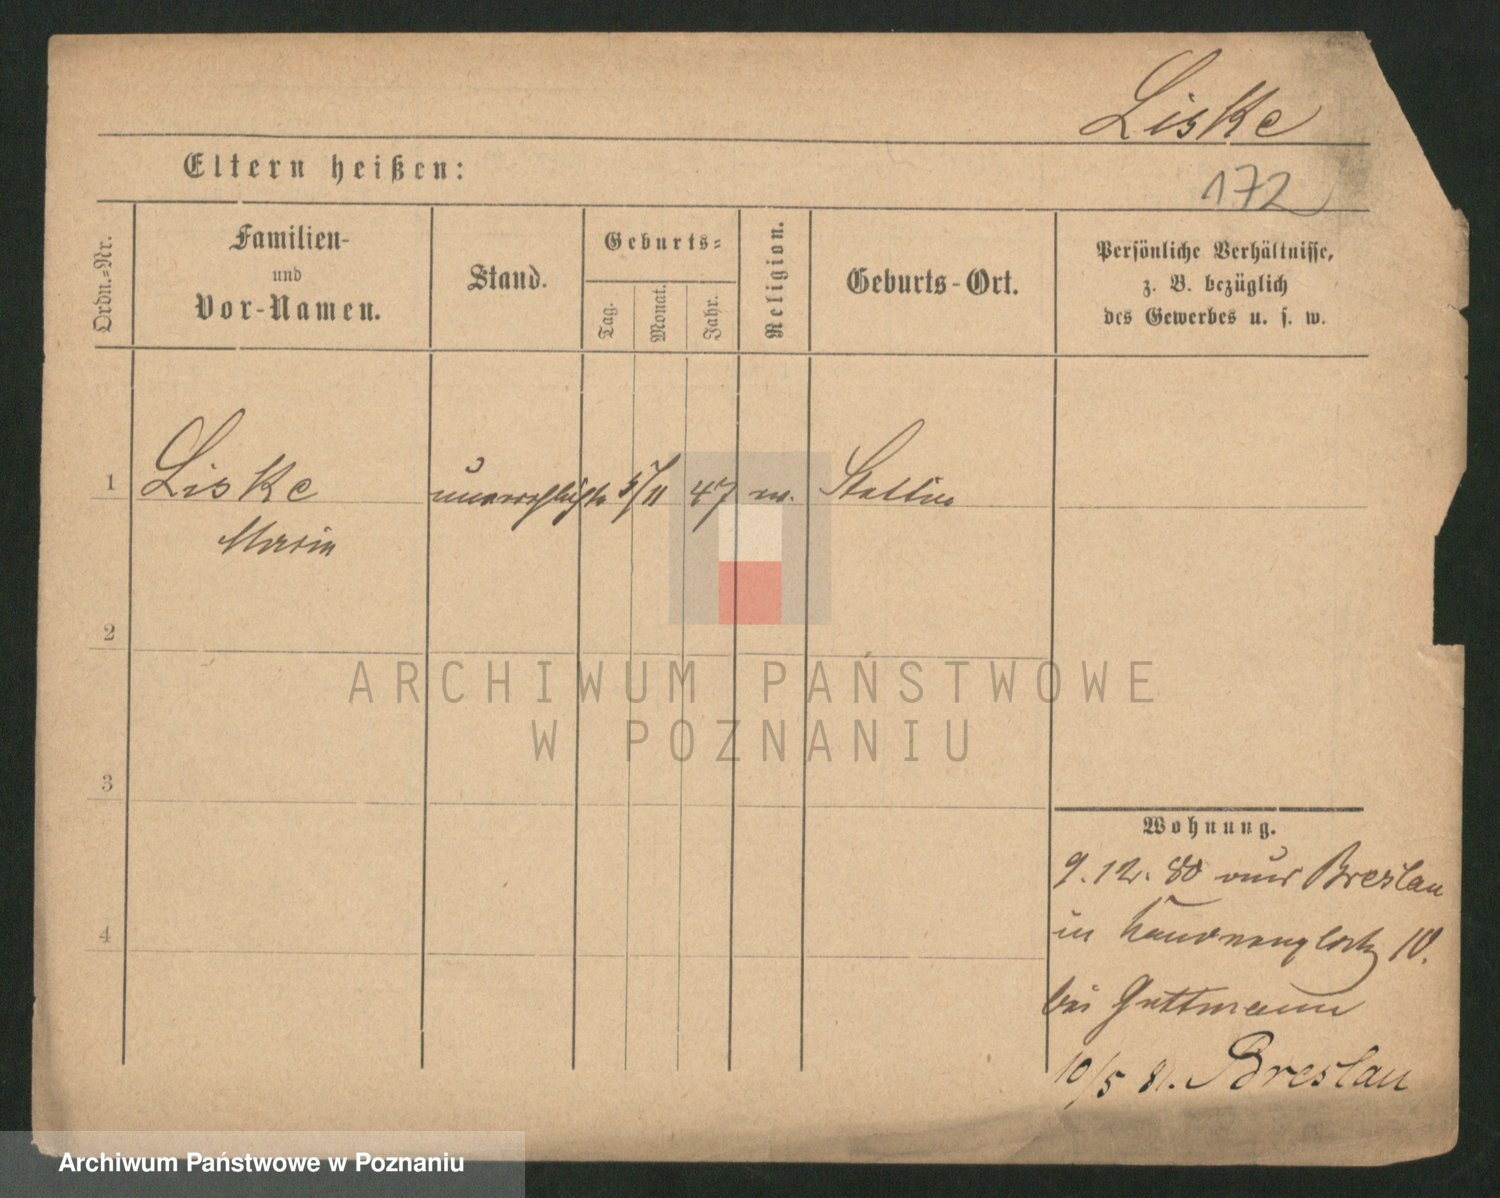 Liske
Eltern heißen:
172
Ordn.-Nr.
Familien-
und
Vor-Namen.
Stand.
Geburts-
Tag.
Monat.
Jahr.
Religion.
Geburts-Ort.
Persönliche Verhältnisse,
z. B. bezüglich
des Gewerbes u. s. w.
1
Liske
unverehlichte
5/11
47
Stettin
Maria
2
ARCHIWUM PAŃSTWOWE
W POZNANIU
3
Wohnung.
9. 12. 80 aus Breslau
in 10.
bei Guttmann
4
10/5 81. Breslau
Archiwum Państwowe w Poznaniu